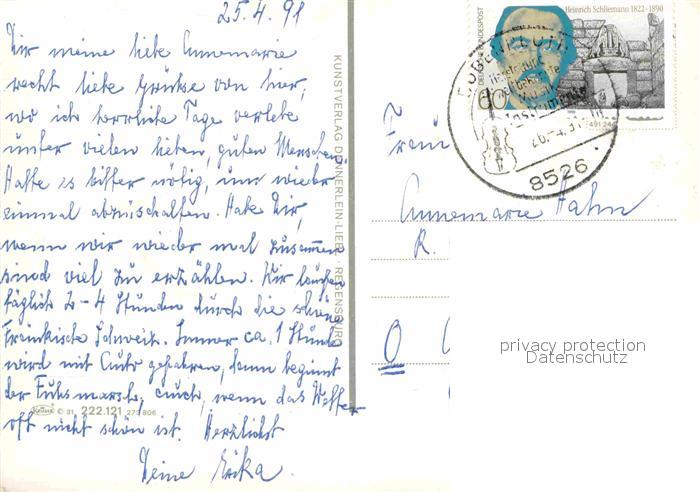 25.4.91
Dir meine liebe Annemarie
recht liebe Grüße von hier,
wo ich herrliche Tage verlebe
unter vielen lieben, guten Menschen.
Hatte es bitter nötig, um wieder
einmal abzuschalten. Habe Dir,
wenn wir wieder mal zusammen
sind viel zu erzählen. Wir laufen
täglich 2-4 Stunden durch die schöne
Fränkische Schweiz. Immer ca. 1 Stunde
wird mit Auto gefahren, dann beginnt
der Fußmarsch, auch, wenn das Wetter
oft nicht schön ist. Herzlichst
Deine Erika.
KUNSTVERLAG DENNERLEIN-LIEB REGENSBURG
© 31 222.121 273 806
DEUTSCHE BUNDESPOST
60
Heinrich Schliemann 1822-1890
BUBENREUTH
26.-4.91
8526
Annemarie Hahn
R.
O
privacy protection
Datenschutz